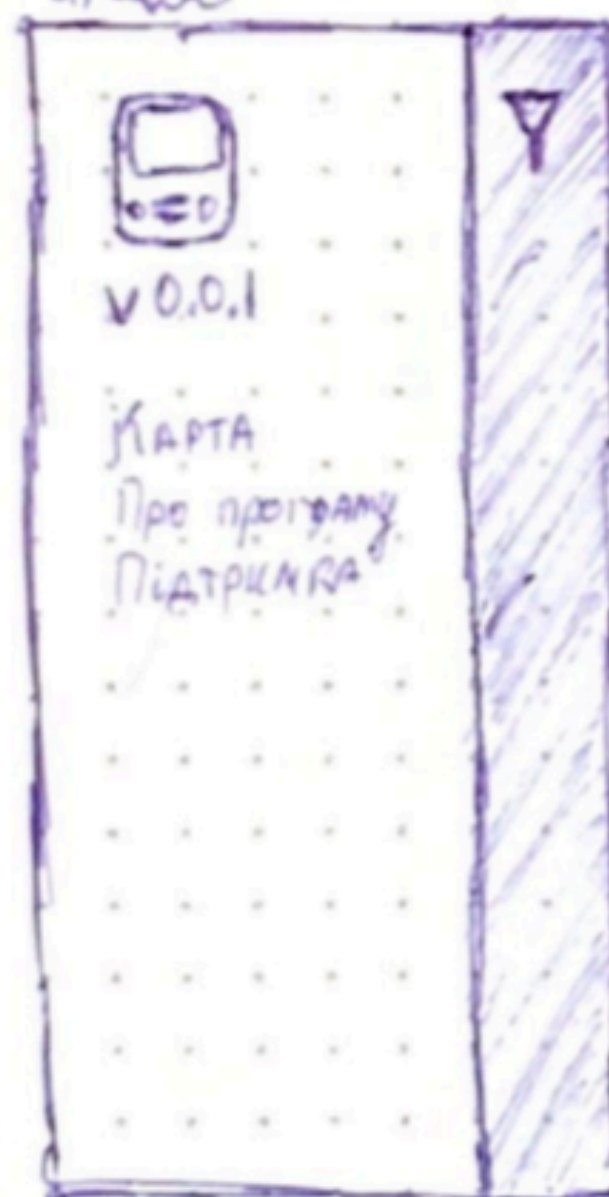 v 0.0.1
Карта
Про програму
Підтримка